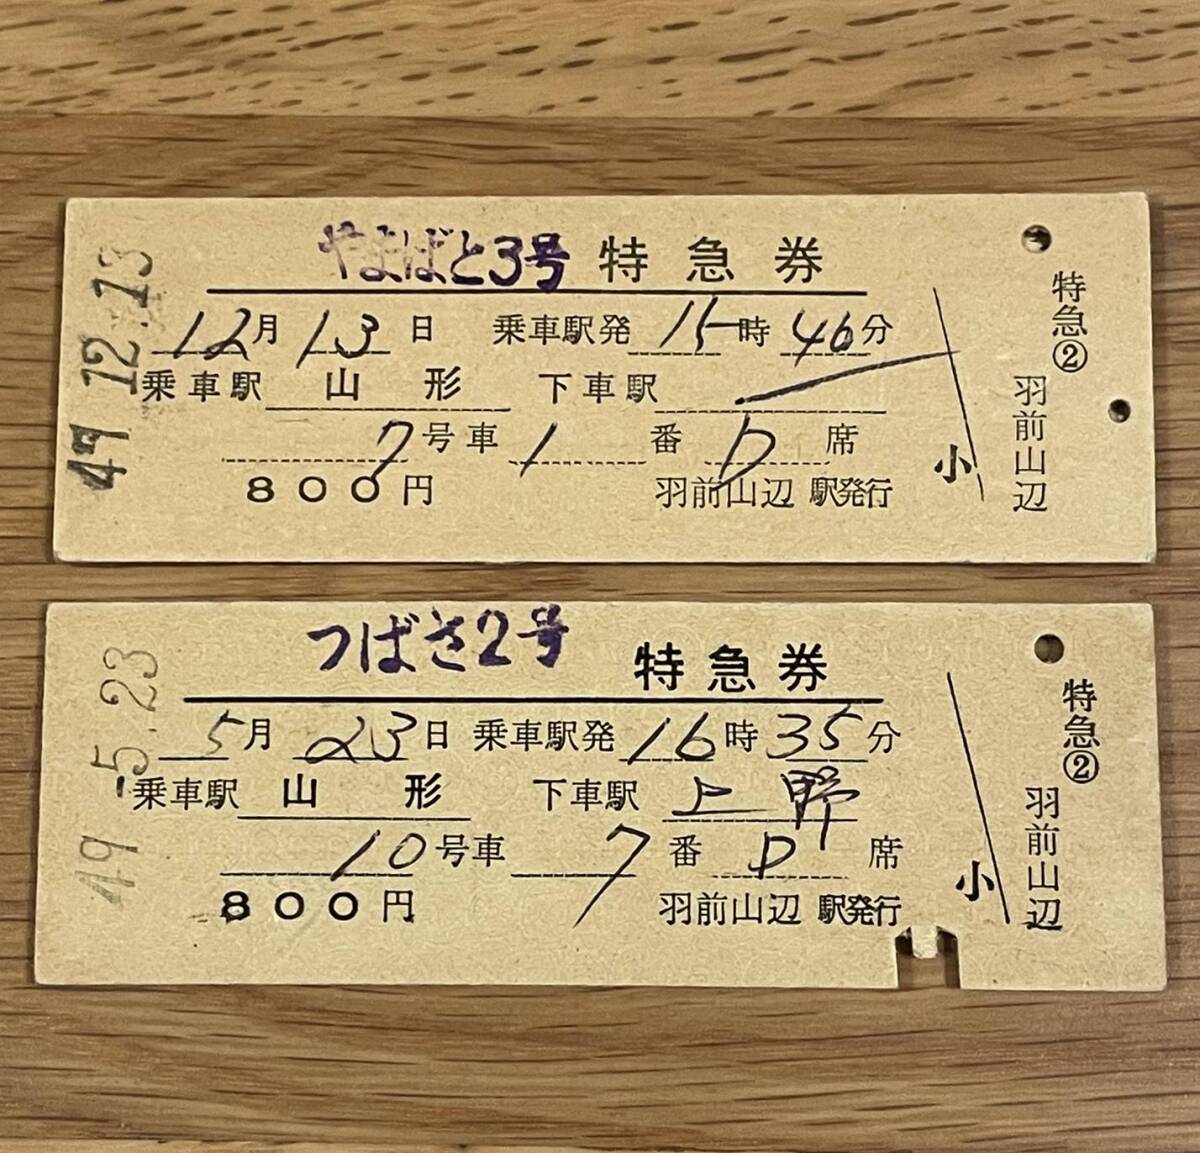 やまばと3号 特急券
12月 13日 乗車駅発 15時 46分
乗車駅 山形 下車駅
7号車 1番 D席
800円 羽前山辺 駅発行
小
特急②
羽前山辺
49.12.13
つばさ2号 特急券
5月 23日 乗車駅発 16時 35分
乗車駅 山形 下車駅 上野
10号車 7番 D席
800円 羽前山辺 駅発行
小
特急②
羽前山辺
49.-5.23